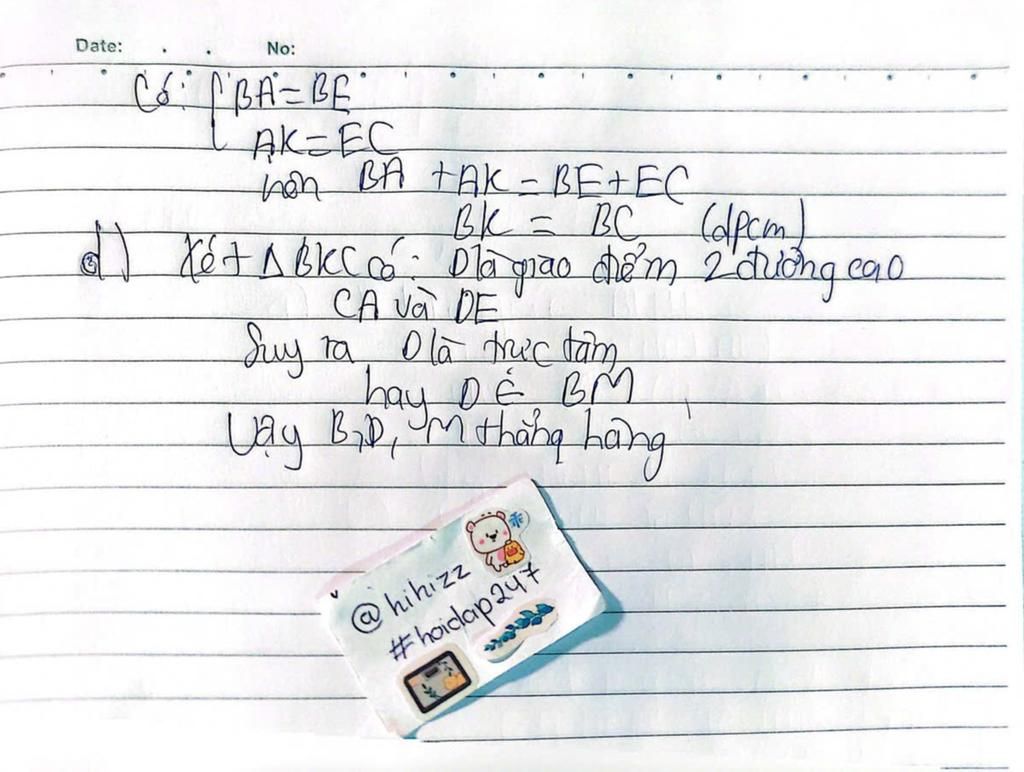 Date: . . No:
Có: { BA = BE
AK = EC
nên BA + AK = BE + EC
BK = BC (đpcm)
d) Xét Δ BKC có: D là giao điểm 2 đường cao
CA và DE
Suy ra D là trực tâm
hay D ∈ BM
Vậy B, D, M thẳng hàng
@hihizz
#hoidap247